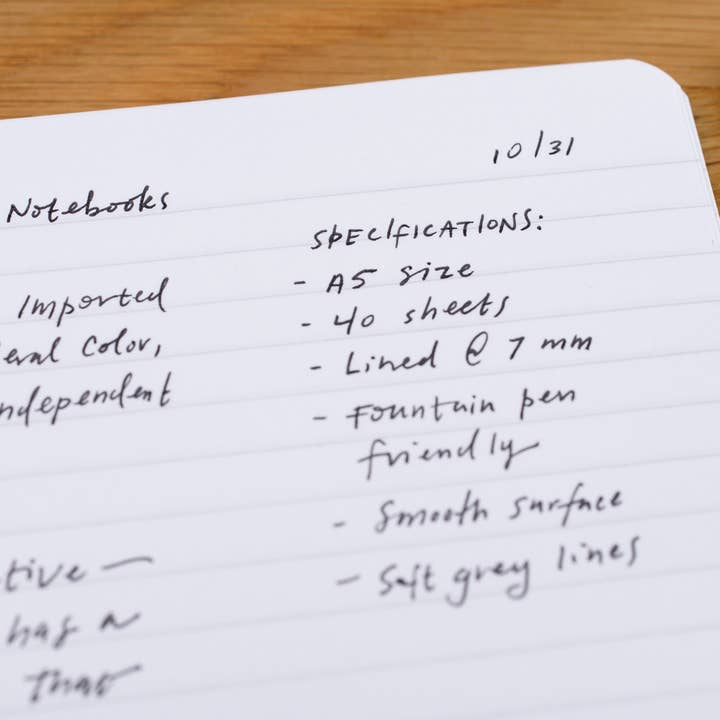 10/31
Notebooks
Imported
eral Color,
ndependent
tive —
has a
that
SPECIFICATIONS:
- A5 size
- 40 sheets
- Lined @ 7 mm
- Fountain pen
friendly
- Smooth surface
- Soft grey lines